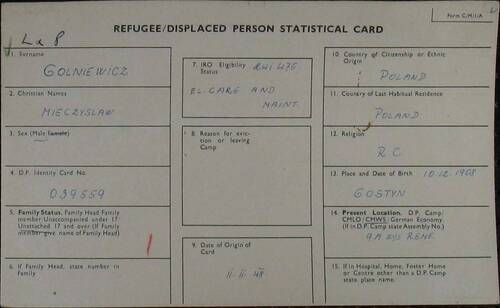 Form C/M/I/A
L & P
REFUGEE/DISPLACED PERSON STATISTICAL CARD
1. Surname
GOLNIEWICZ
2. Christian Names
MIECZYSLAW
3. Sex (Male Female)
4. D.P. Identity Card No.
039559
5. Family Status. Family Head Family
member Unaccompanied under 17
Unattached 17 and over (If Family
member give name of Family Head)
6. If Family Head, state number in
Family
7. IRO Eligibility
Status
EL. CARE AND
MAINT.
8. Reason for evic-
tion or leaving
Camp
9. Date of Origin of
Card
10. Country of Citizenship or Ethnic
Origin
POLAND
11. Country of Last Habitual Residence
POLAND
12. Religion
R.C
13. Place and Date of Birth 10.12.1908
GOSTYN
14. Present Location. D.P. Camp/
CMLO/CMWS/ German Economy.
(If in D.P. Camp state Assembly No.)
15. If in Hospital, Home, Foster Home
or Centre other than a D.P. Camp
state place name.